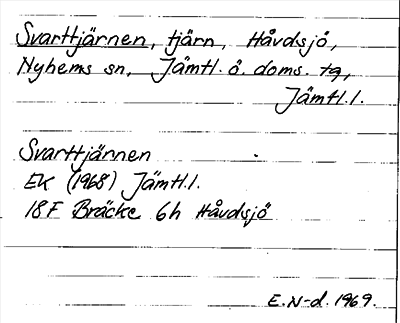 Svarttjärnen, tjärn, Håvdsjö,
Nyhems sn, Jämtl. ö. doms. tg,
Jämtl.l.
Svarttjärnen
EK (1968) Jämtl.l.
18F Bräcke 6h Håvdsjö
E.N-d. 1969.